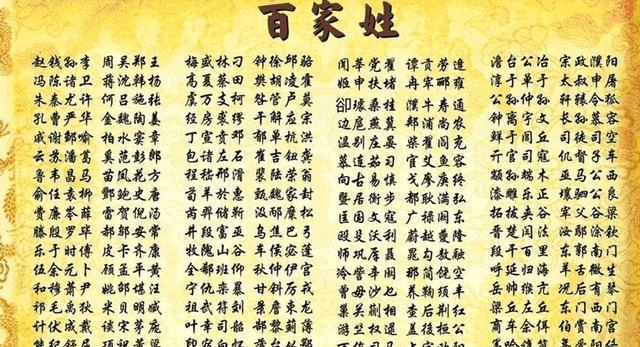 百家姓
赵钱孙李 周吴郑王 梅盛林刁 钟徐邱骆 闻莘党翟 谭贡劳逄 澹台公冶 宗政濮阳
冯陈褚卫 蒋沈韩杨 高夏蔡田 樊胡凌霍 姬申扶堵 冉宰郦雍 淳于单于 太叔申屠
朱秦尤许 何吕施张 虞万支柯 昝管卢莫 卻璩桑桂 濮牛寿通 公孙仲孙 轩辕令狐
孔曹严华 金魏陶姜 经房裘缪 干解应宗 边扈燕冀 浦尚农 钟离宇文 长孙慕容
戚谢邹喻 柏水窦章 丁宣贲邓 郁单杭洪 温别庄晏 柴瞿阎充 鲜于闾丘 司徒司空
云苏潘葛 奚范彭郎 包诸左石 崔吉钮龚 慕连茹习 宦艾鱼容 亓官司寇 仉督子车
鲁韦昌马 苗凤花方 程嵇邢滑 裴陆荣翁 向古易慎 戈廖庾终 颛孙端木 巫马公西
俞任袁柳 酆鲍史唐 荀羊於惠 甄曲家封 暨居衡步 都耿满弘 漆雕乐正 壤驷公良
费廉岑薛 雷贺倪汤 芮羿储靳 汲邴糜松 匡国文寇 广禄阙东 拓拔夹谷 宰父谷梁
滕殷罗毕 郝邬安常 井段富巫 乌焦巴弓 欧殳沃利 蔚越夔隆
乐于时傅 皮卞齐康 牧隗山谷 车侯宓蓬 师巩厍聂 晁勾敖融 段干百里 东郭南门
伍余元卜 顾孟平黄 全郗班仰 秋仲伊宫 冷訾辛阚 那简饶空 呼延归海 羊舌微生
和穆萧尹 姚邵湛汪 宁仇栾暴 甘钭厉戎 曾毋沙乜 养鞠须丰 岳帅缑亢 况后有琴
祁毛禹狄 米贝明臧 祖武符刘 景詹束龙 巢关蒯相 查后荆红 梁丘左丘 东门西门